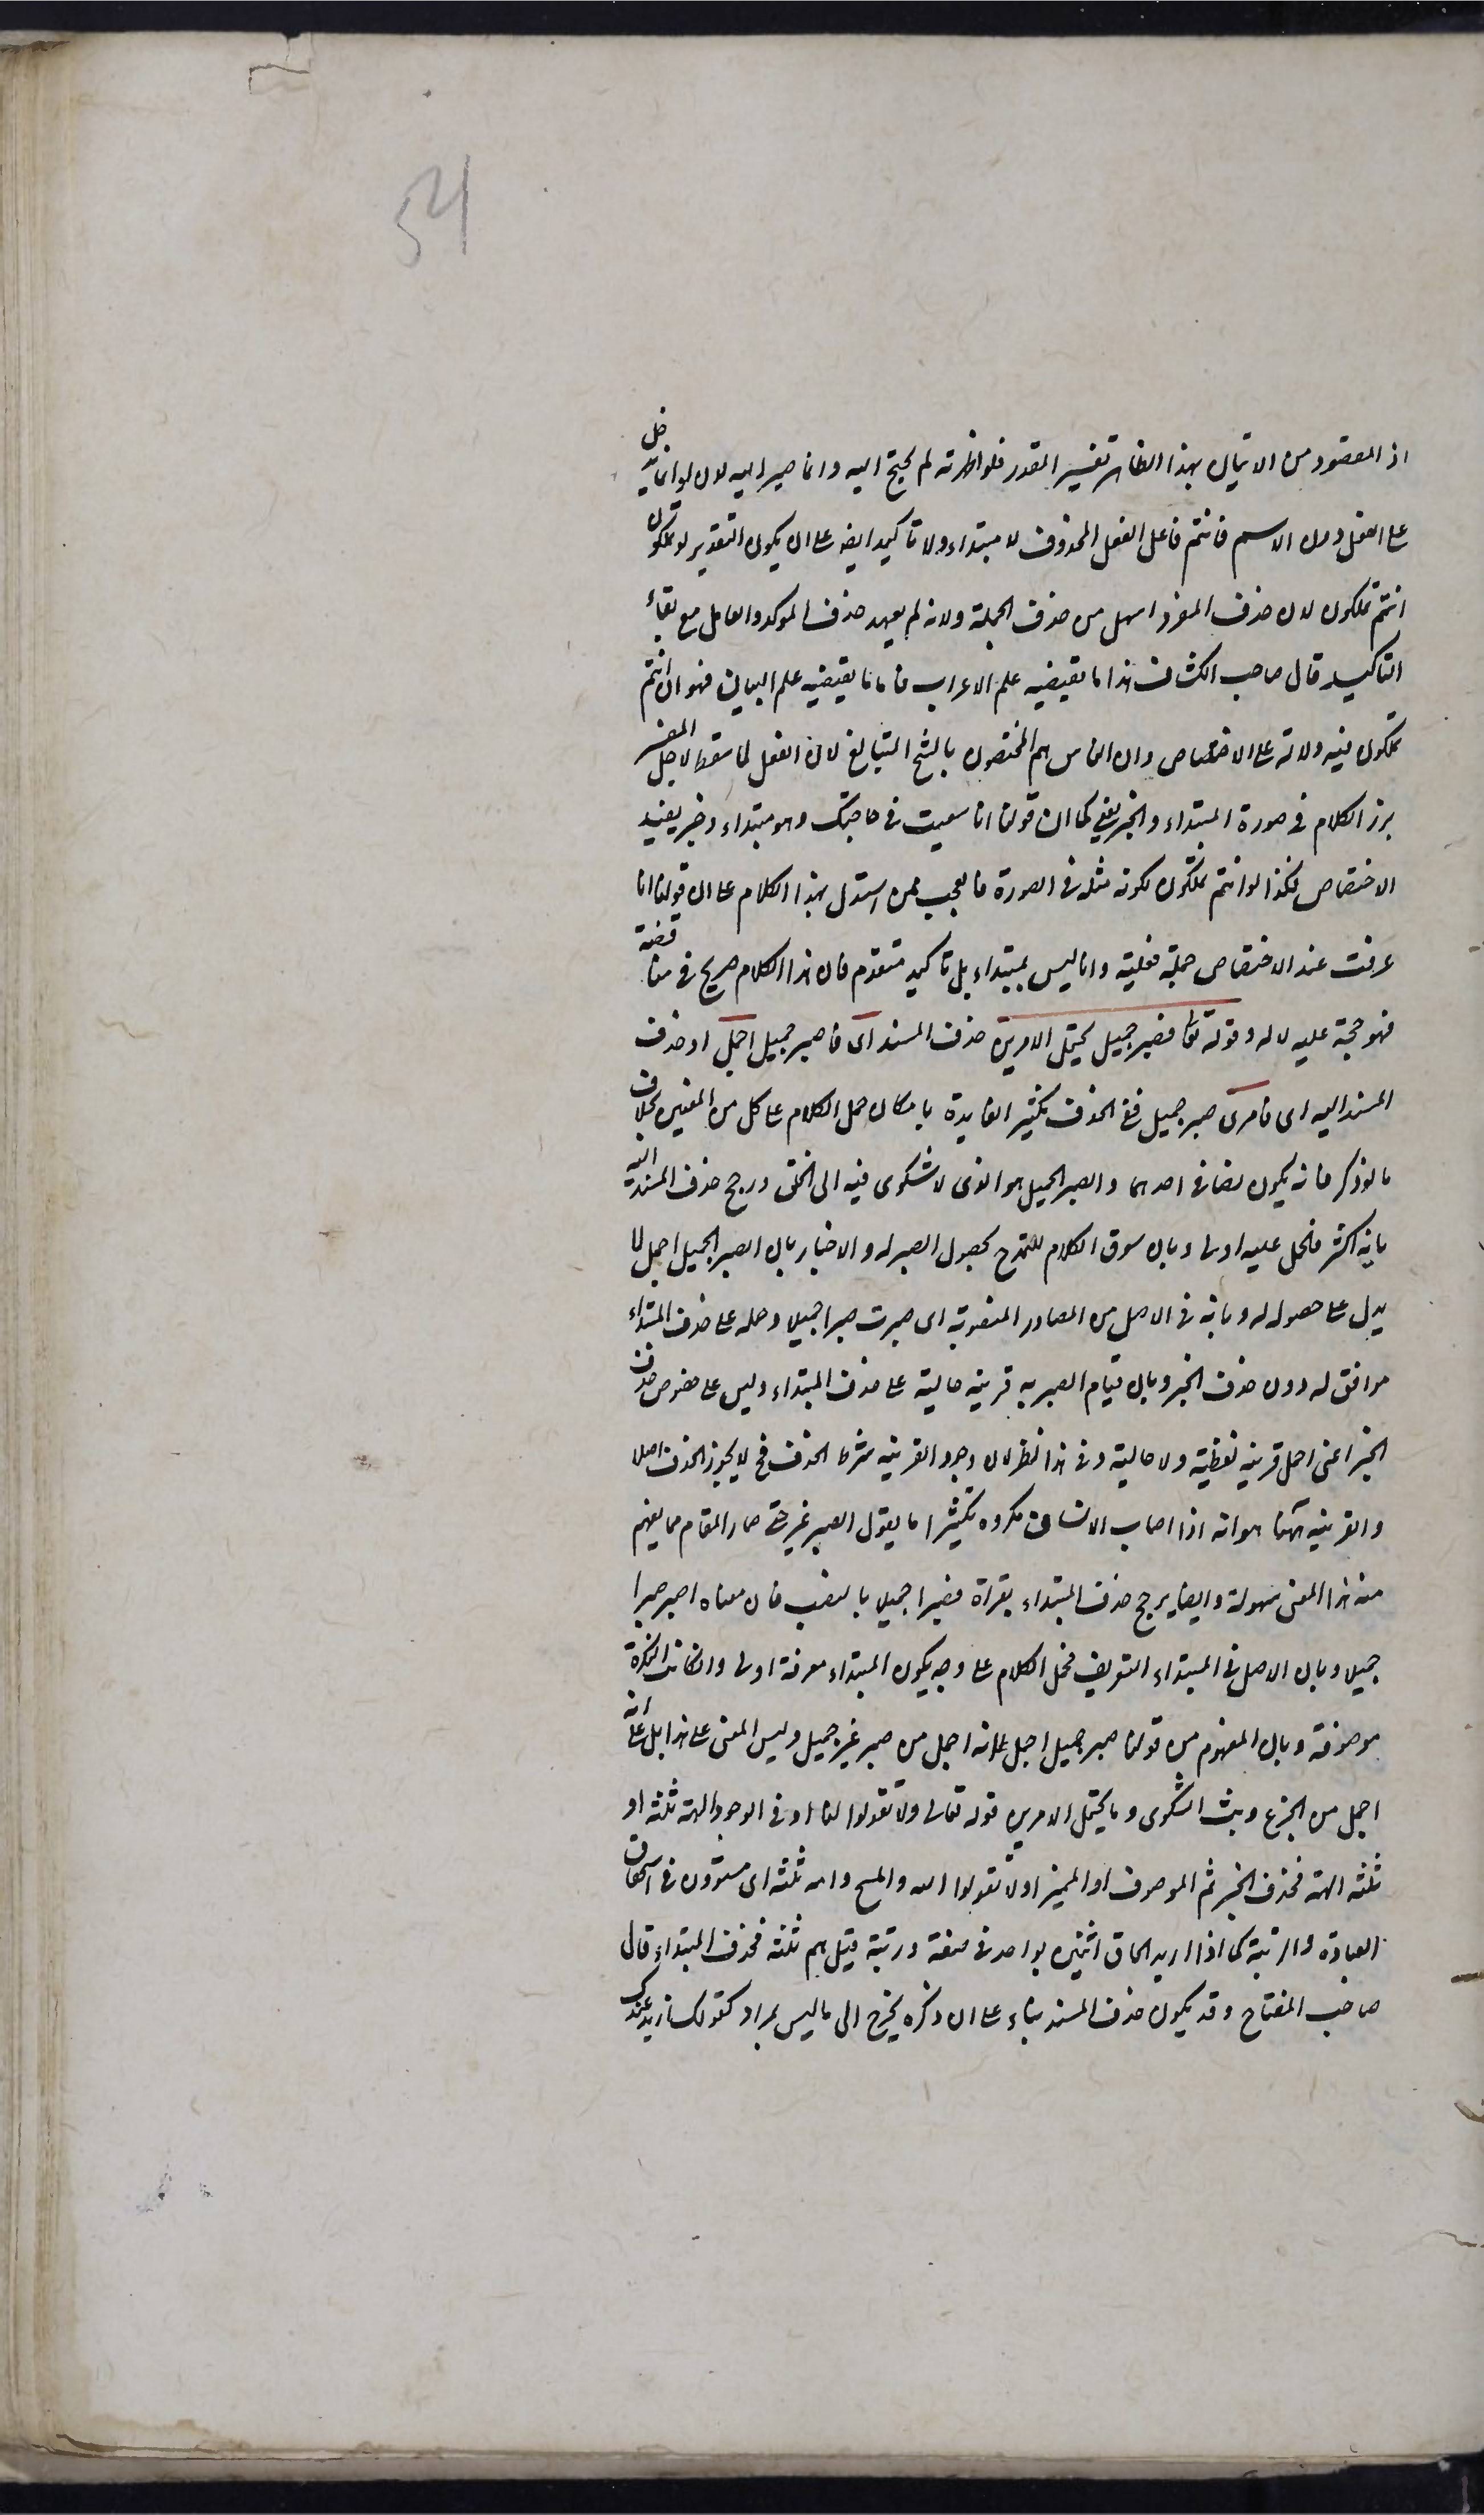 54
اذ المقصود من الاتيان بهذا الظاهر تفسير المقدر فلو اظهرته لم يحتج اليه وانما صير اليه لان لو انما يدخل
على الفعل دون الاسم فانتم فاعل الفعل المحذوف لا مبتداء ولا تاكيد ايضا على ان يكون التقدير لو تملكون
انتم تملكون لان حذف المفرد اسهل من حذف الجملة ولانه لم يعهد حذف الموكد والعامل مع بقاء
التاكيد قال صاحب الكشاف هذا ما يقتضيه علم الاعراب فاما ما يقتضيه علم البيان فهو ان انتم
تملكون فيه دلالة على الاختصاص وان الناس هم المختصون بالشح المتبالغ لان الفعل لما سقط لاجل المفسر
برز الكلام في صورة المبتداء والخبر يعني كما ان قولنا انا سعيت في حاجتك وهو مبتداء وخبر يفيد
الاختصاص فكذا لو انتم تملكون لكونه مثله في الصورة فالعجب ممن استدل بهذا الكلام على ان قولنا انا
عرفت عند الاختصاص جملة فعلية وانا ليس بمبتداء بل تاكيد متقدم فان هذا الكلام صريح في مناقضة
فهو حجة عليه لا له وقوله تعا فصبر جميل يحتمل الامرين حذف المسند اى فصبر جميل اجمل او حذف
المسند اليه اى فامرى صبر جميل ففى الحذف تكثير الفايدة بامكان حمل الكلام على كل من المعنيين بخلاف
ما لو ذكر فانه يكون نصا في احدهما والصبر الجميل هو الذى لا شكوى فيه الى الخلق ورجح حذف المسند اليه
بانه اكثر فالحمل عليه اولى وبان سوق الكلام للمدح بحصول الصبر له والاخبار بان الصبر الجميل اجمل لا
يدل على حصوله له وبانه في الاصل من المصادر المنصوبة اى صبرت صبرا جميلا وحمله على حذف المبتداء
موافق له دون حذف الخبر وبان قيام الصبر به قرينة حالية على حذف المبتداء وليس على خصوص حذف
الخبر اعنى اجمل قرينة لفظية ولا حالية وفى هذا نظر لان وجود القرينة شرط الحذف فح لا يجوز الحذف اصلا
والقرينة ههنا هو انه اذا اصاب الانسان مكروه فكثيرا ما يقول الصبر خير حتى صار المقام مما يفهم
منه هذا المعنى بسهولة وايضا يرجح حذف المبتداء بقراة فصبرا جميلا بالنصب فان معناه اصبر صبرا
جميلا وبان الاصل في المبتداء التعريف فحمل الكلام على وجه يكون المبتداء معرفة اولى وان كانت النكرة
موصوفة وبان المفهوم من قولنا صبر جميل اجمل انه اجمل من صبر غير جميل وليس المعنى على هذا بل على انه
اجمل من الجزع وبث الشكوى ومما يحتمل الامرين قوله تعالى ولا تقولوا لنا او في الوجود الهة ثلثة او
ثلثة الهة فحذف الخبر ثم الموصوف او المميز او لا تقولوا الله والمسيح وامه ثلثة اى مستوون في استحقاق
العبادة والرتبة كما اذا اريد الحاق اثنين بواحد في صفة ورتبة قيل هم ثلثة فحذف المبتداء قال
صاحب المفتاح وقد يكون حذف المسند بناء على ان ذكره يخرج الى ما ليس بمراد كقولك ازيد عندك